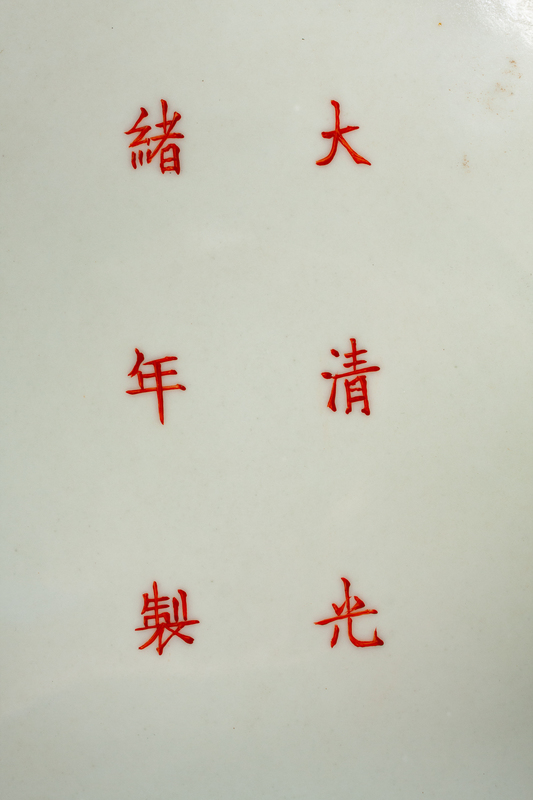 大清光
緒年製